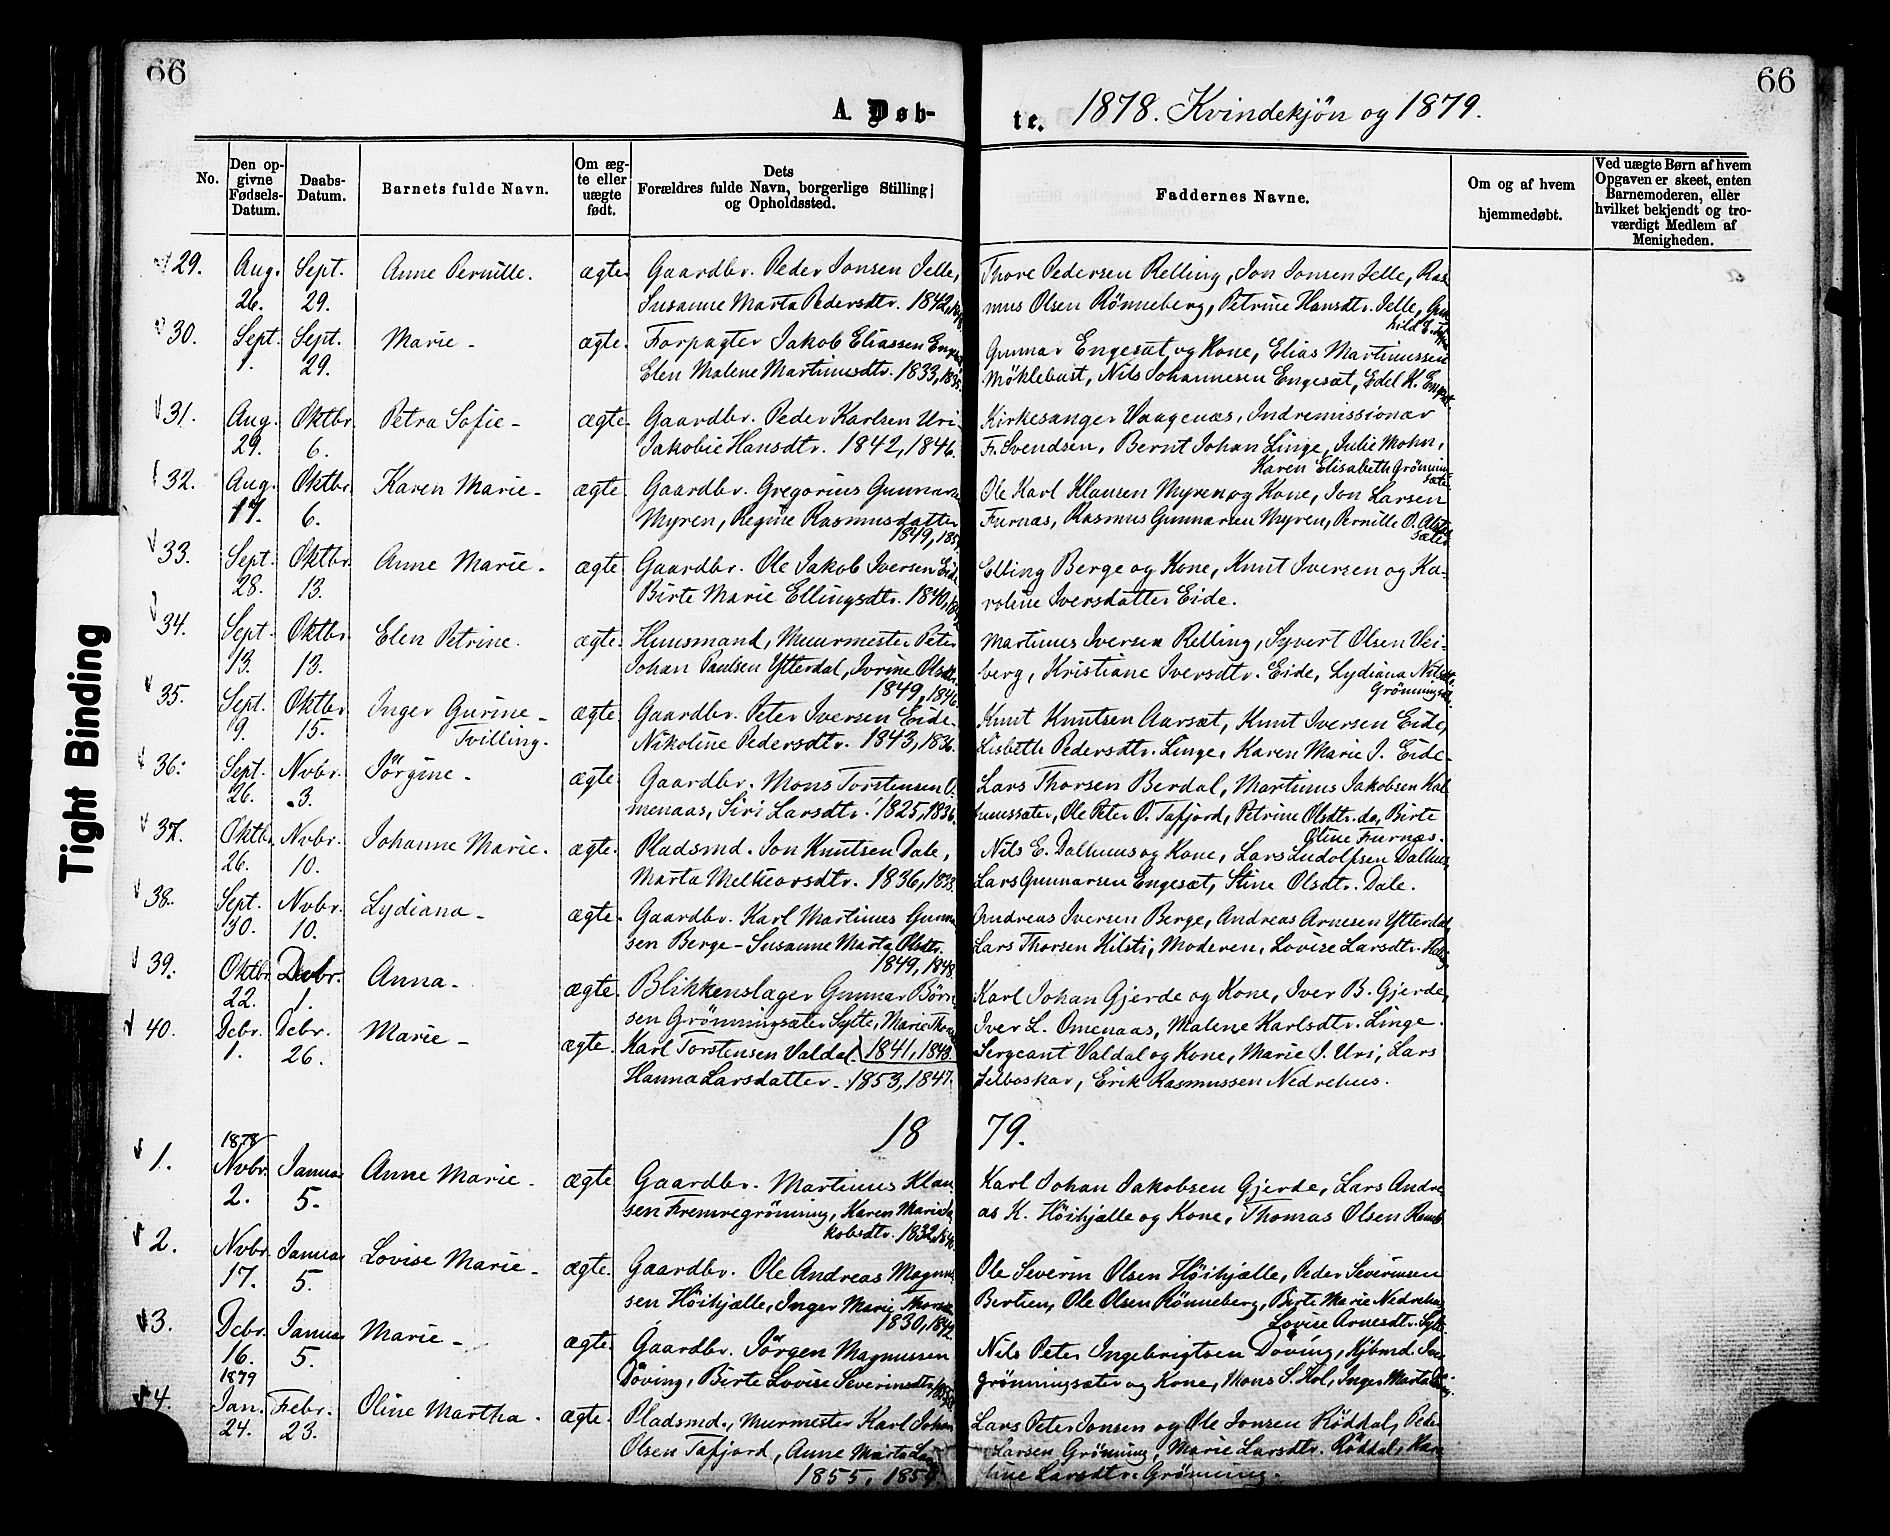 66
66
A. Døb-
te.
1878. Kvindekjön og 1879.
No.
Den op-
givne
Fødsels-
Datum.
Daabs-
Datum.
Barnets fulde Navn.
Om æg-
te eller
uægte
født.
Dets
Forældres fulde Navn, borgerlige Stilling
og Opholdssted.
Faddernes Navne.
Om og af hvem
hjemmedøbt.
Ved uægte Børn af hvem
Opgaven er skeet, enten
Barnemoderen, eller
hvilket bekjendt og tro-
værdigt Medlem af
Menigheden.
29. Aug. 26. Sept. 29. Anne Pernille. ægte. Gaardbr. Peder Jonsen Jelle,
Susanne Marta Pedersdtr. 1842,
Thore Pedersen Relling, Jon Jonsen Jelle, Ras
mus Olsen Rönneberg, Petrine Hansdtr. Jelle, Gun
hild
30. Sept. 1. Sept. 29. Marie - ægte. Forpagter Jakob Eliassen
Elen Malene Martinusdtr. 1833,
Gunnar Engesæt og Kone, Elias Martinussen
Möklebust, Nils Johannesen Engesæt, Edel K.
31. Aug. 29. Oktbr. 6. Petra Sofie - ægte. Gaardbr. Peder Karlsen Uri
Jakobie Hansdtr. 1842, 1846.
Kirkesanger Vaagenæs, Indremissionær
Fr. Svendsen, Bernt Johan Linge, Julie Mohn,
Karen Elisabeth Grönning
sæter
32. Aug. 17. Oktbr. 6. Karen Marie - ægte. Gaardbr. Gregorius Gunnars
Myren, Regine Rasmusdatter
1849,
Ole Karl Klausen Myren og Kone, Jon Larsen
Furnæs, Rasmus Gunnarsen Myren, Pernille O.
sæter
33. Sept. 28. Oktbr. 13. Anne Marie - ægte. Gaardbr. Ole Jakob Iversen Eide
Birte Marie Ellingsdtr. 1840,
Elling Berge og Kone, Knut Iversen og Ka-
roline Iversdatter Eide.
34. Sept. 13. Oktbr. 13. Elen Petrine. ægte. Huusmand, Muurmester Peter
Johan Paulsen Ytterdal, Ivrine Olsdtr.
1849, 1846.
Martinus Iversen Relling, Syvert Olsen Vei-
berg, Kristiane Iversdtr. Eide, Lydiana Nilsdtr.
Grönningsæt.
35. Sept. 9. Oktbr. 15. Inger Gurine -
Tvilling. ægte. Gaardbr. Peter Iversen Eide.
Nikoline Pedersdtr. 1843, 1836.
Knut Knutsen Aarsæt, Knut Iversen Eide,
Lisbeth Pedersdtr. Linge, Karen Marie I. Eide.
36. Sept. 26. Nvbr. 3. Jörgine - ægte. Gaardbr. Mons Torstensen O-
menaas, Siri Larsdtr. 1825, 1836.
Lars Thorsen Berdal, Martinus Jakobsen Kal
husæter, Ole Peter O. Tafjord, Petrine Olsdtr. do, Birte
Oline Furnæs.
37. Oktbr. 26. Nvbr. 10. Johanne Marie. ægte. Pladsmd. Jon Knutsen Dale,
Marta Melkiorsdtr. 1836,
Nils E. Dalhuus og Kone, Lars Ludolfsen Dalhuus,
Lars Gunnarsen Engesæt, Stine Olsdtr. Dale.
38. Sept. 30. Nvbr. 10. Lydiana - ægte. Gaardbr. Karl Martinus Gunnar
sen Berge - Susanne Marta Olsdtr.
1849, 1848.
Andreas Iversen Berge, Andreas Arnesen Ytterdal,
Lars Thorsen Kilsti, Moderen, Lovise Larsdtr.
39. Oktbr. 22. Decbr. 1. Anna - ægte. Blikkenslager Gunnar Börre
sen Grönningsæter Sylte, Marie
1841, 1843.
Karl Johan Gjerde og Kone, Iver B. Gjerde,
Iver L. Omenaas, Malene Karlsdtr. Linge.
40. Dcbr. 1. Dcbr. 26. Marie - ægte. Karl Torstensen Valdal
Hanna Larsdatter - 1853, 1847.
Sergeant Valdal og Kone, Marie I. Uri, Lars
Jelboskar, Erik Rasmussen Nedrehus.
18 79.
1. 1878 Nvbr. 2. Januar 5. Anne Marie - ægte Gaardbr. Martinus Klau
sen Fremregrönning, Karen Marie Ja
kobsdtr. 1832,
Karl Johan Jakobsen Gjerde, Lars Andre
as K. Höihjælle og Kone, Thomas Olsen
2. Nvbr. 17. Januar 5. Lovise Marie - ægte. Gaardbr. Ole Andreas Magnus
sen Höihjælle, Inger Marie
1830, 1842.
Ole Severin Olsen Höihjælle, Peder Severinsen
Bertien, Ole Olsen Rönneberg, Berte Marie Nedrehus
Lovise Arnesdtr. Sylte.
3. Dcbr. 16. Januar 5. Marie - ægte. Gaardbr. Jörgen Magnussen
Döving, Birte Lovise Severinsdtr.
Nils Peter Ingebrigtsen Döving, Kjbmd.
grönningsæter og Kone, Mons S. Hol, Inger Marta
4. 1879 Jan. 24. Febr. 23. Oline Martha. ægte. Pladsmd., Murmester Karl Johan
Olsen Tafjord, Anne Marta
1855, 1859.
Lars Peter Jonsen og Ole Jonsen Röddal, Peder
Larsen Grönning, Marie Larsdtr. Röddal, Kar
line Larsdtr. Grönning.
Tight Binding